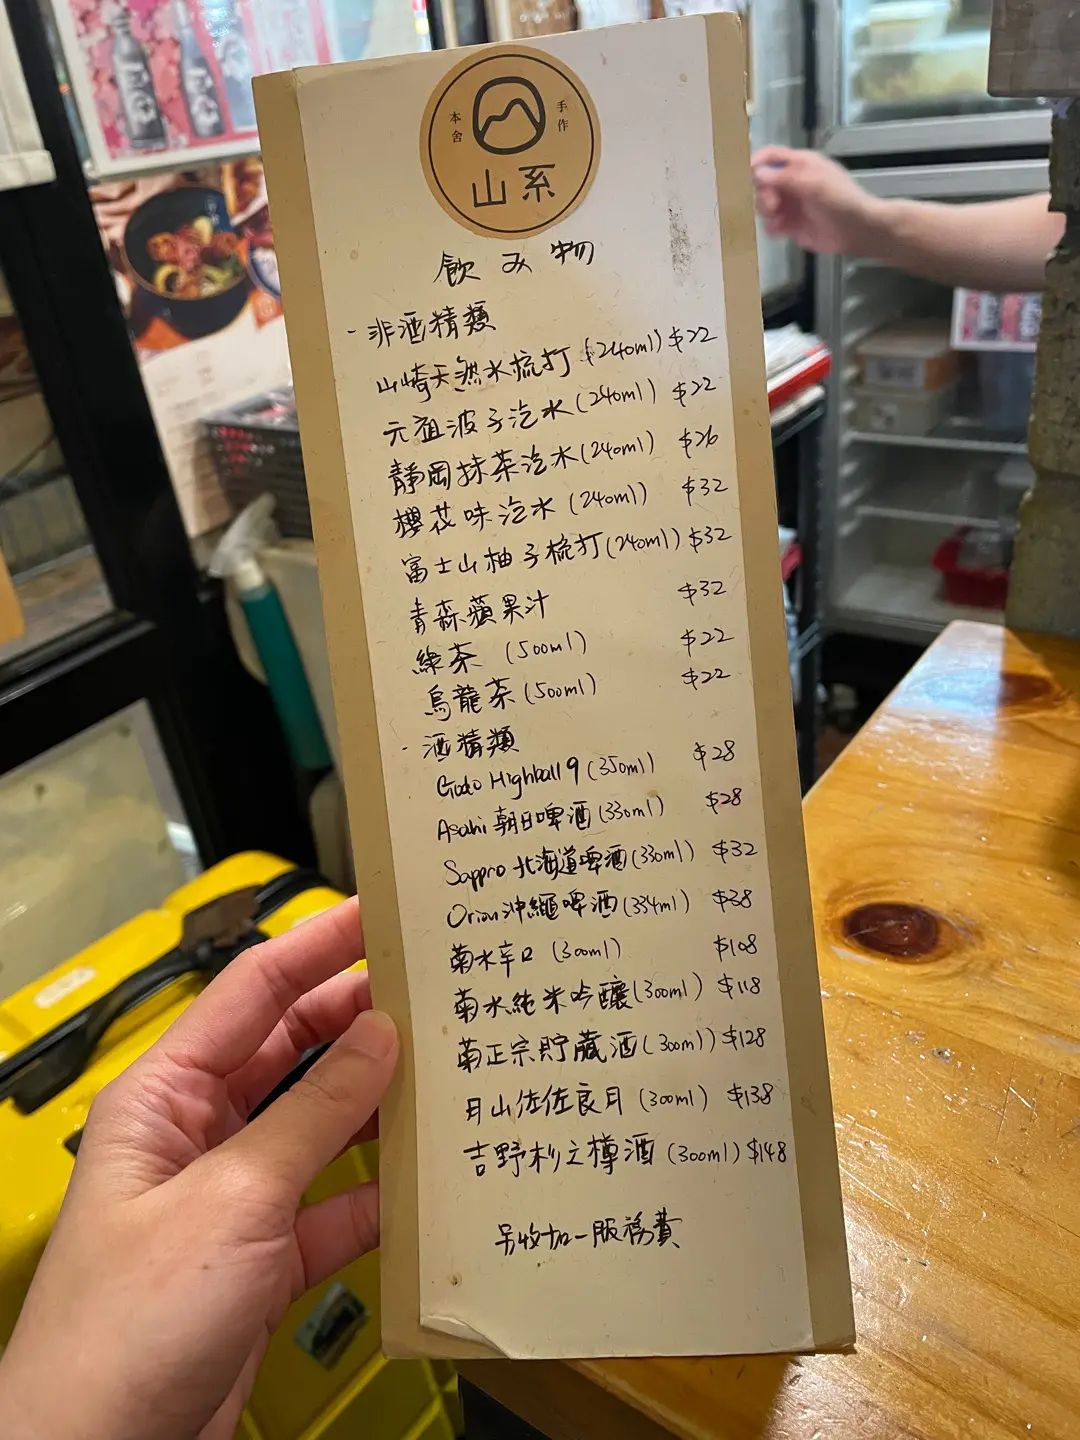 本舍
手作
山系
飲み物
- 非酒精類
山崎天然水梳打 (240ml) $22
元祖波子汽水 (240ml) $22
靜岡抹茶汽水 (240ml) $26
櫻花味汽水 (240ml) $32
富士山柚子梳打 (240ml) $32
青森蘋果汁 $32
綠茶 (500ml) $22
烏龍茶 (500ml) $22
- 酒精類
Godo Highball 9 (350ml) $28
Asahi 朝日啤酒 (330ml) $28
Sappro 北海道啤酒 (330ml) $32
Orion 沖繩啤酒 (334ml) $38
菊水辛口 (300ml) $108
菊水純米吟釀 (300ml) $118
菊正宗貯藏酒 (300ml) $128
月山佐佐良月 (300ml) $138
吉野杉之樽酒 (300ml) $148
另收加一服務費